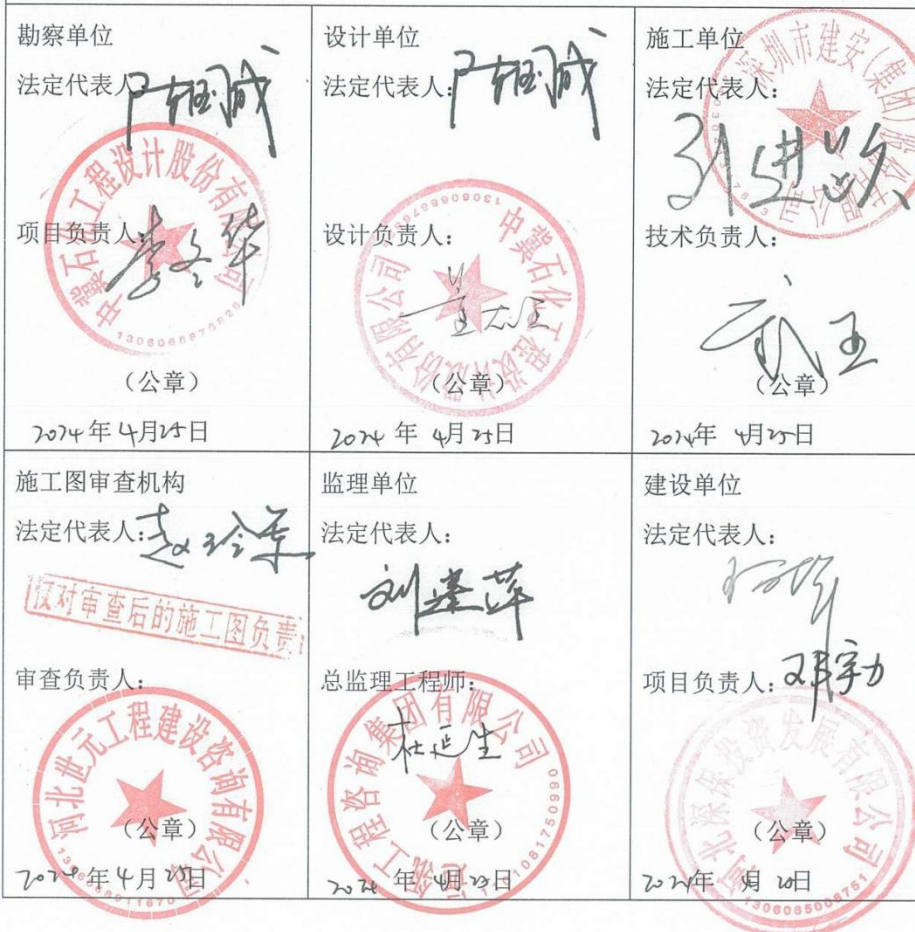 勘察单位
法定代表人
中冀石化工程设计股份有限公司
项目负责人:
（公章）
2024年4月25日
设计单位
法定代表人:
设计负责人:
中冀石化工程设计股份有限公司
（公章）
2024年 4月25日
施工单位
法定代表人:
深圳市建安(集团)股份有限公司
技术负责人:
（公章）
2024年 4月25日
施工图审查机构
法定代表人:
仅对审查后的施工图负责
审查负责人:
河北世元工程建设咨询有限公司
（公章）
年4月25日
监理单位
法定代表人:
总监理工程师:
杜延生
工程咨询集团有限公司
（公章）
2024年 4月25日
建设单位
法定代表人:
项目负责人: 邓宇力
河北深保投资发展有限公司
（公章）